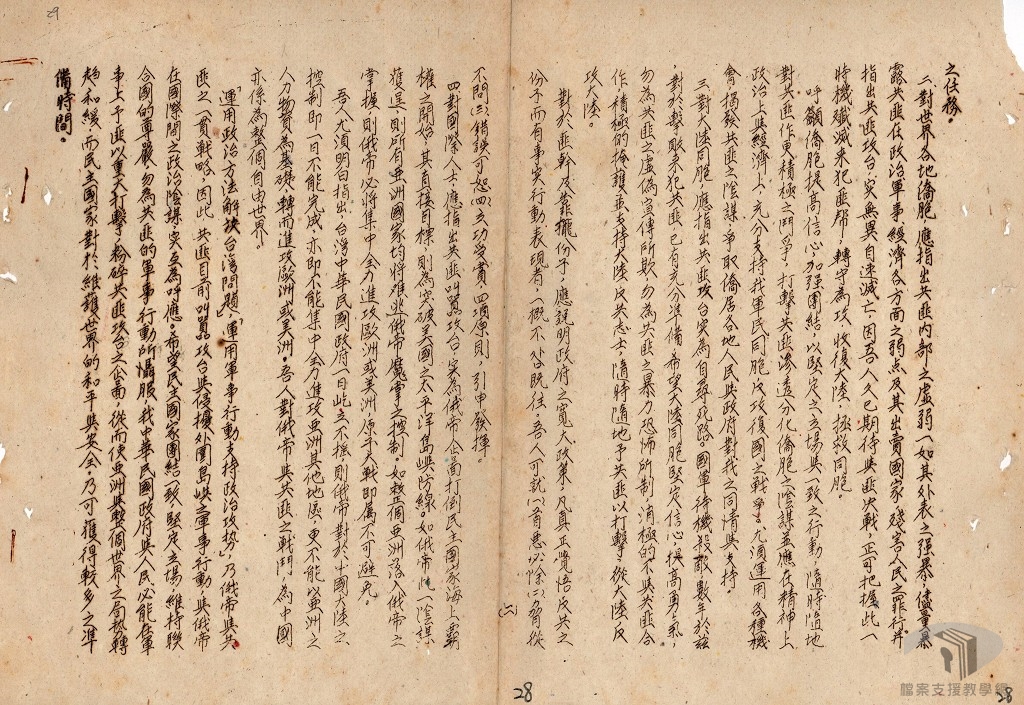 之任務。
二、對世界各地僑胞,應指出共匪內部之虛弱一如其外表之强暴,儘量暴
露共匪在政治軍事經濟各方面之弱点及其出賣國家殘害人民之罪行并
指出共匪攻台,实無異自速滅亡,因吾人久已期待與匪决戰,正可把握此一
時機殲滅来犯匪帮,轉守為攻,收復大陸,拯救同胞。
呼籲僑胞提高信心,加强團結,以堅定之立場與一致之行動,隨時隨地
對共匪作更積極之鬥爭,打擊共匪滲透分化僑胞之陰謀並應在精神上
政治上與經济上,充分支持我軍民同胞反攻復國之戰爭。尤須運用各種機
會揭發共匪之陰謀,爭取僑居各地人民與政府對我之同情與支持。
三、對大陸同胞,應指出共匪攻台实為自尋死路。國軍待機殺敵數年於兹
,對於擊敗来犯共匪,已有充分準備,希望大陸同胞堅定信心,提高勇氣,
勿為共匪之虛偽宣傳所欺,勿為共匪之暴力恐怖所制,消極的不與共匪合
作,積極的掩護並支持大陸反共志士,隨時隨地予共匪以打擊,從大陸反
攻大陸。
對於匪幹及靠攏份子,應說明政府之寬大政策,凡真正覺悟反共之
份子而有事实行動表現者,一概不咎既往,吾人可就(一)首惡必除(二)脅從
(六)
28
不問(三)錯誤可恕(四)立功受賞」四項原則,引申發揮。
四、對國際人士,應指出共匪叫囂攻台,实為俄帝企啚打倒民主國家海上霸
權之開始,其直接目標,則為突破美國之太平洋島嶼防線,如俄帝此一陰謀
獲逞,則所有亞洲國家均將難逃俄帝魔掌之控制,如整個亞洲落入俄帝之
掌握,則俄帝必將集中全力進攻歐洲或美洲,原子大戰即屬不可避免。
吾人尤須明白指出:台灣中華民國政府一日屹立不搖,則俄帝對於中國大陸之
控制即一日不能完成,亦即不能集中全力進攻亞洲其他地區,更不能以亞洲之
人力物資為基礎,轉而進攻歐洲或美洲。吾人對俄帝與共匪之戰鬥,為中國
亦係為整個自由世界。
「運用政治方法解决台灣問題」「運用軍事行動支持政治攻势」乃俄帝與共
匪之一貫戰略,因此,共匪目前叫囂攻台與侵擾外圍島嶼之軍事行動,與俄帝
在國際間之政治陰謀,实互為呼應。希望民主國家團結一致,堅定立場,維持聯
合國的尊嚴,勿為共匪的軍事行動所懾服,我中華民國政府與人民必能在軍
事上予匪以重大打擊,粉碎共匪攻台之企啚,從而使亞洲與整個世界之局势轉
趋和緩,而民主國家對於維護世界的和平與安全乃可獲得較多之準
備時間。
29
檔案支援教學網
28